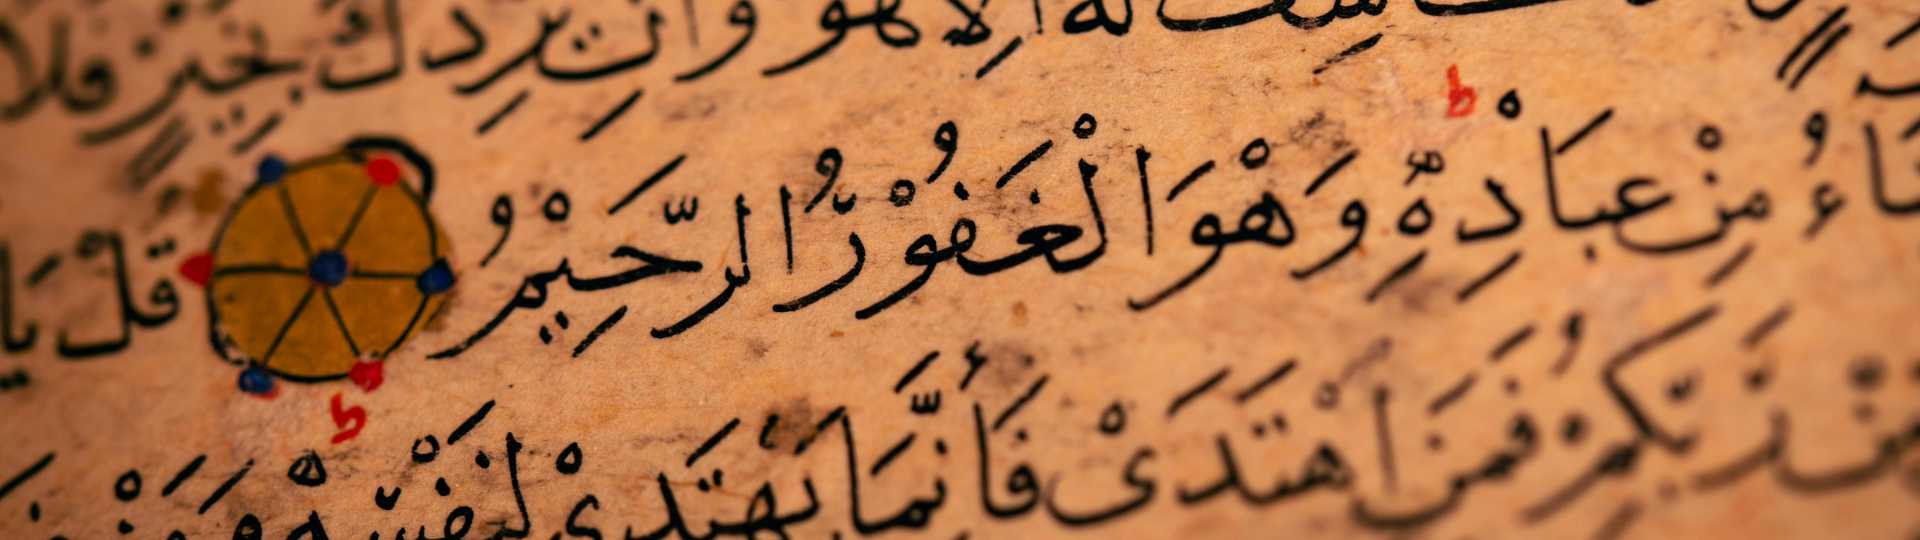 كَاشِفَ لَهُ اِلَّا هُوَ وَاِنْ يُرِدْكَ بِخَيْرٍ فَلَا
ط
اءُ مِنْ عِبَادِهِ وَهْوَ الْغَفُوْرُ الرَّحِيْمُ قُلْ يَا
مِنْ رَبِّكُمْ فَمَنِ اهْتَدَىْ فَاَنَّمَا يَهْتَدِىْ لِنَفْسِهْ وَمَنْ
ط